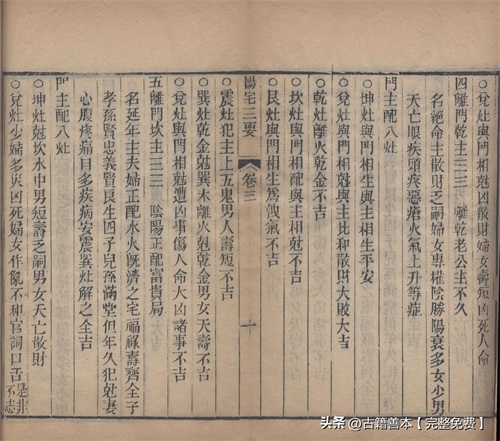 ○兌灶與門相尅凶散財人命
四離門乾主三三 離乾老公主不久
名絕命主散財乏嗣婦女專權陰勝陽衰多女少男
夭亡眼疾頭疼惡瘡火氣上升等症
門主配八灶
○坤灶與門相生與主相生平安
○兌灶與門相尅與主比和散財大敗大吉
○乾灶離火乾金不吉
○坎灶與門相配與主相尅不吉
○艮灶與門相生為洩氣不吉
陽宅三要 卷三 十
○震灶犯主上五鬼男人壽短不吉
○巽灶乾金尅巽木離火尅乾金男女夭壽不吉
○兌灶與門相尅遭凶事傷人命大凶諸事不吉
五離門坎主三三 陰陽正配富貴局
名延年主夫婦正配水火旣濟之宅福祿壽齊全子
孝孫賢忠義賢良生四子兒孫滿堂但年久犯尅妻
心腹疼痛目多疾病安震巽灶解之全吉
門主配八灶
○坤灶尅坎水中男短壽乏嗣男女夭亡散財
○兌灶少婦多災凶死婦女作亂不和官詞口舌是非不志
头条 @古籍善本【完整免费】